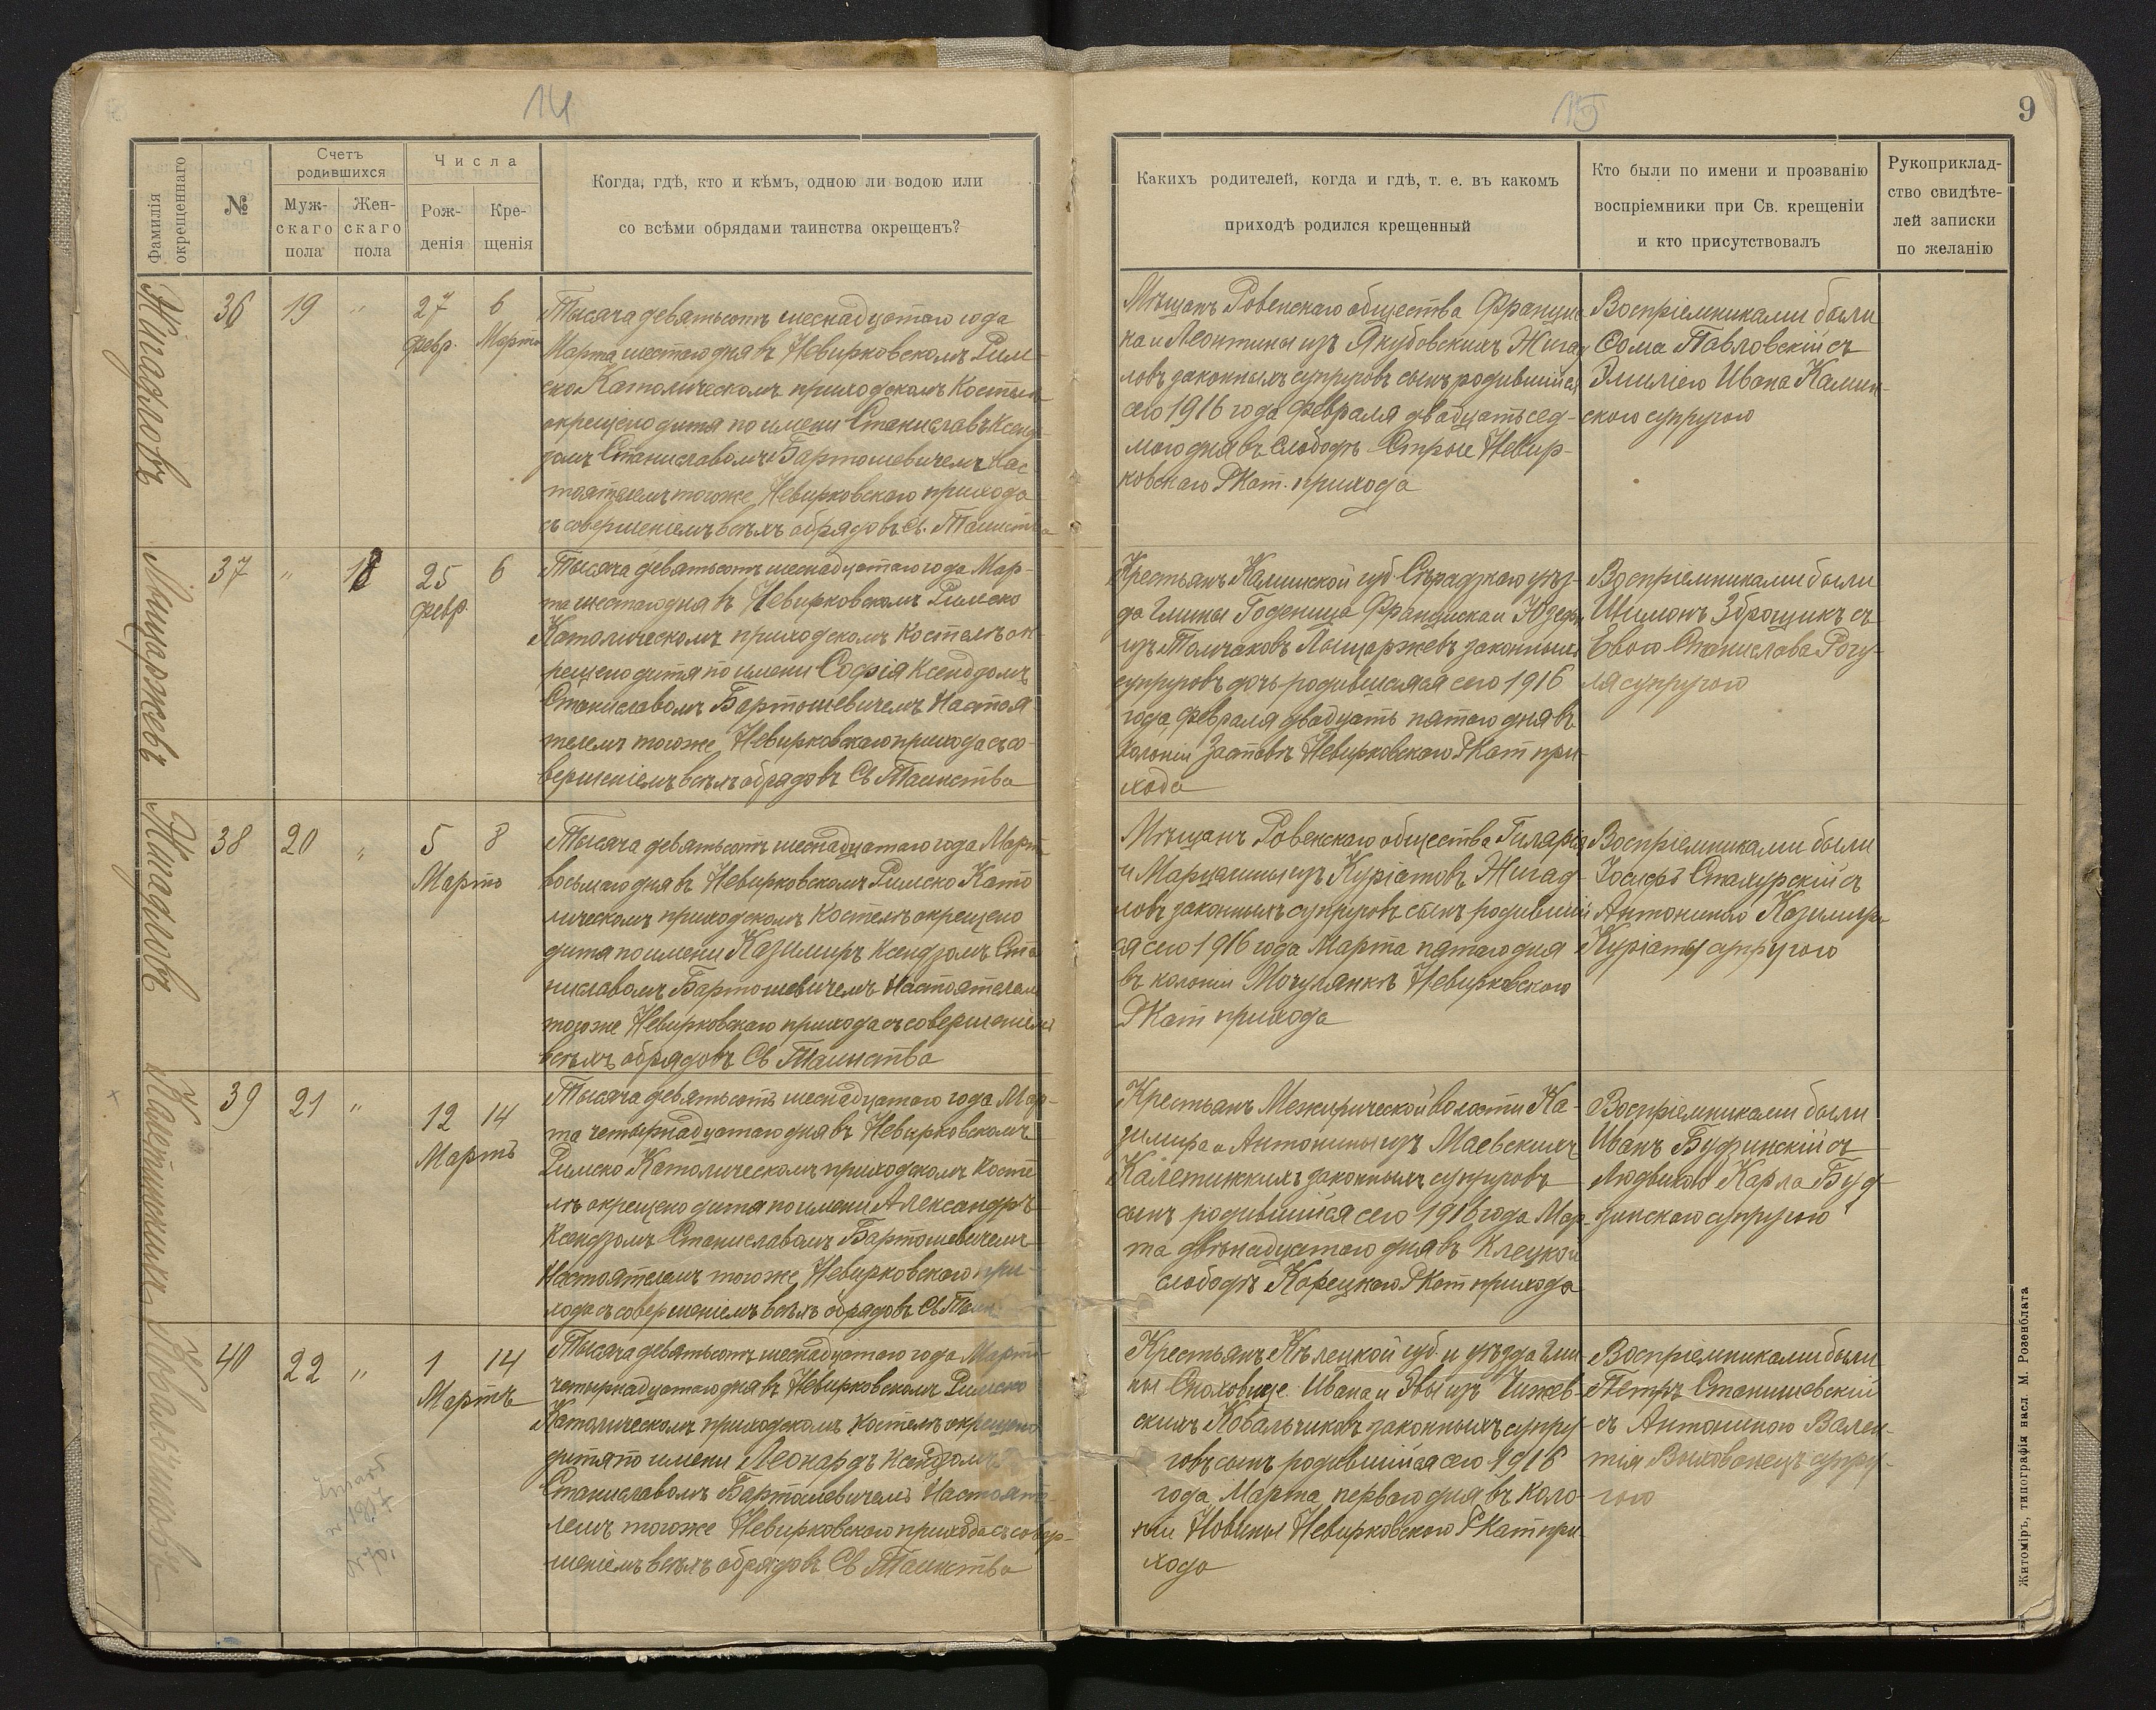 14
Фамилія
окрещеннаго
№
Счетъ
родившихся
Муж-
скаго
пола
Жен-
скаго
пола
Числа
Рож-
денія
Кре-
щенія
Когда, гдѣ, кто и кѣмъ, одною ли водою или
со всѣми обрядами таинства окрещенъ?
Жигадловъ
36
19
"
27
февр.
6
Марта
Тысяча девятьсотъ шеснадцатаго года
Марта шестаго дня въ Невирковскомъ Рим-
ско Католическомъ приходскомъ костелѣ
окрещено дитя по имени Станиславъ Ксенд-
зомъ Станиславомъ Бартошевичемъ Нас
тоятелемъ тогоже Невирковскаго прихода
съ совершеніемъ всѣхъ обрядовъ Св. Таинства
Лыщаржевъ
37
"
18
25
февр.
6
Тысяча девятьсотъ шеснадцатаго года Мар-
та шестаго дня въ Невирковскомъ Римско
Католическомъ приходскомъ костелѣ ок-
рещено дитя по имени Софія Ксендзомъ
Станиславомъ Бартошевичемъ Настоя
телемъ тогоже Невирковскаго прихода съ со-
вершеніемъ всѣхъ обрядовъ Св Таинства
Жигадловъ
38
20
"
5
Марта
8
Тысяча девятьсотъ шеснадцатаго года Марта
восьмаго дня въ Невирковскомъ Римско Като
лическомъ приходскомъ костелѣ окрещено
дитя по имени Казимиръ Ксендзомъ Ста
ниславомъ Бартошевичемъ Настоятелемъ
тогоже Невирковскаго прихода съ совершеніемъ
всѣхъ обрядовъ Св Таинства
Калетинскихъ
39
21
"
12
Мартъ
14
Тысяча девятьсотъ шеснадцатаго года Мар-
та четырнадцатаго дня въ Невирковскомъ
Римско Католическомъ приходскомъ косте
лѣ окрещено дитя по имени Александръ
Ксендзомъ Станиславомъ Бартошевичемъ
Настоятелемъ тогоже Невирковскаго при-
хода съ совершеніемъ всѣхъ обрядовъ Св Таин.
Ковальчиковъ
40
22
"
1
Мартъ
14
Тысяча девятьсотъ шеснадцатаго года Марта
четырнадцатаго дня въ Невирковскомъ Римско
Католическомъ приходскомъ костелѣ окрещено
дитя по имени Леонардъ Ксендзомъ
Станиславомъ Бартошевичемъ Настояте
лемъ тогоже Невирковскаго прихода съ совер-
шеніемъ всѣхъ обрядовъ Св Таинства
15
9
Какихъ родителей, когда и гдѣ, т. е. въ какомъ
приходѣ родился крещенный
Кто были по имени и прозванію
воспріемники при Св. крещеніи
и кто присутствовалъ
Рукоприклад-
ство свидѣте-
лей записки
по желанію
Мѣщанъ Ровенскаго общества Франци
ка и Леонтины изъ Якубовскихъ Жигад
ловъ законныхъ супруговъ сынъ родившійся
сего 1916 года февраля двадцать сед-
маго дня въ слободѣ Острые Невир-
ковскаго РКат. прихода
Воспріемниками были
Фома Павловскій съ
Эмиліею Ивана Камин-
скаго супругою
Крестьянъ Калишской губ Сѣрадзкаго уѣз-
да Гмины Годеница Францишка и Юзефы
изъ Толчаковъ Лыщаржевъ законныхъ
супруговъ дочь родившаяся сего 1916
года февраля двадцать пятаго дня въ
колоніи Заставѣ Невирковскаго РКат при-
хода
Воспріемниками были
Шимонъ Зброщикъ съ
Евою Станислава Рогу-
ля супругою
Мѣщанъ Ровенскаго общества Гиларія
и Марцелины изъ Куріатовъ Жигад-
ловъ законныхъ супруговъ сынъ родившій
ся сего 1916 года Марта пятаго дня
въ колоніи Мочулянкѣ Невирковскаго
РКат прихода
Воспріемниками были
Іосифъ Сталурскій съ
Антониною Казимира
Куріаты супругою
Крестьянъ Межирической волости Ка-
зимира и Антонины изъ Маевскихъ
Калетинскихъ законныхъ супруговъ
сынъ родившійся сего 1916 года Мар-
та двѣнадцатаго дня въ Клецкой
слободѣ Корецкаго РКат прихода
Воспріемниками были
Иванъ Будзинскій съ
Людвикою Карла Буд
зинскаго супругою
Крестьянъ Кѣлецкой губ. и уѣзда Гми-
ны Сноховице Ивана и Евы изъ Чижев-
скихъ Ковальчиковъ законныхъ супру-
говъ сынъ родившійся сего 1916
года Марта перваго дня въ коло-
ніи Новины Невирковскаго РКат при
хода
Воспріемниками были
Петръ Станишевскій
съ Антониною Вален-
тія Выхованецъ супру-
гою
Житоміръ, типографія насл. М. Розенблата